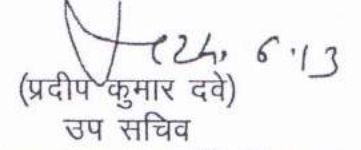 24. 6.13
(प्रदीप कुमार दवे)
उप सचिव